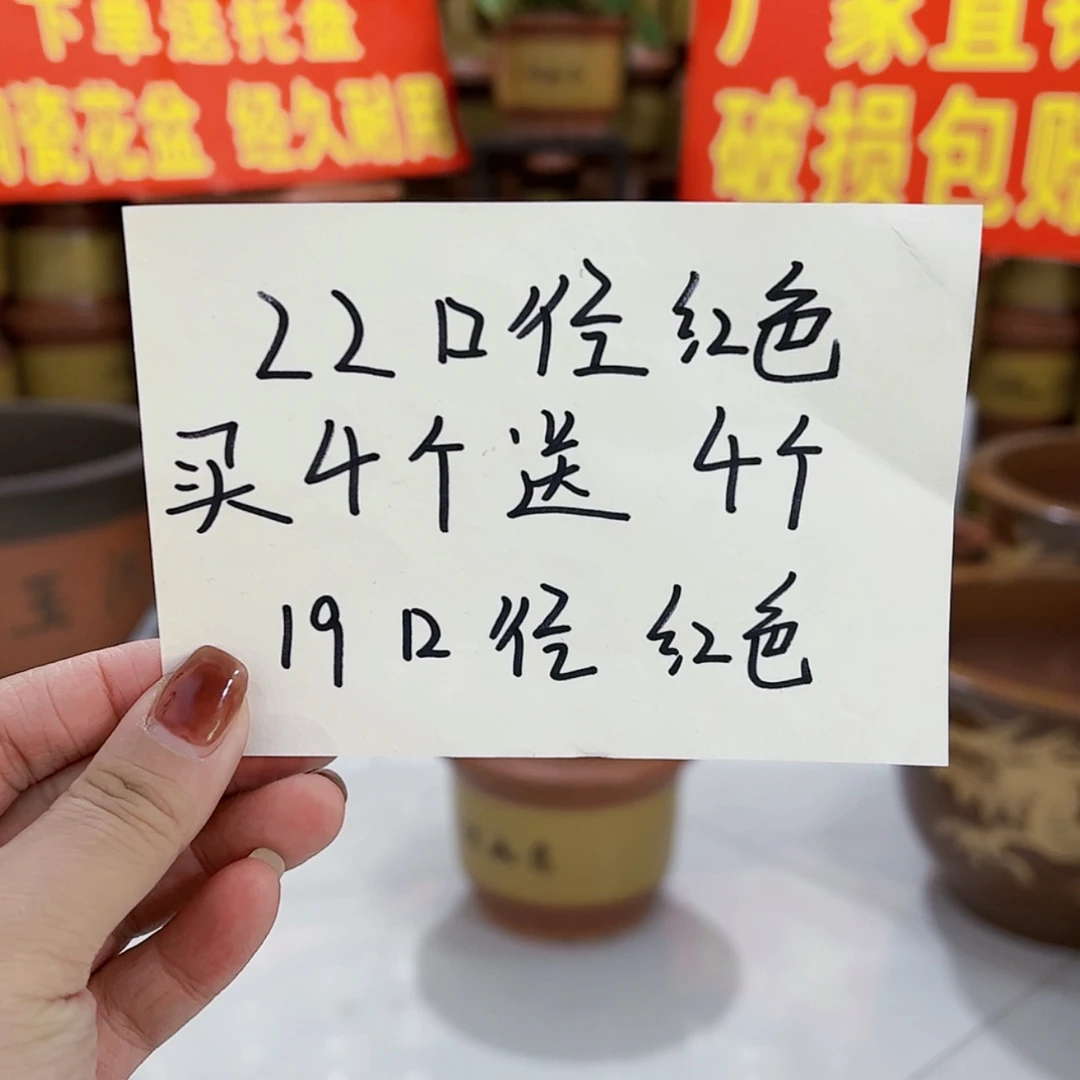 下单送托盘
瓷花盆 经久耐用
厂家直
破损包赔
22口径 红色
买4个送 4个
19口径 红色